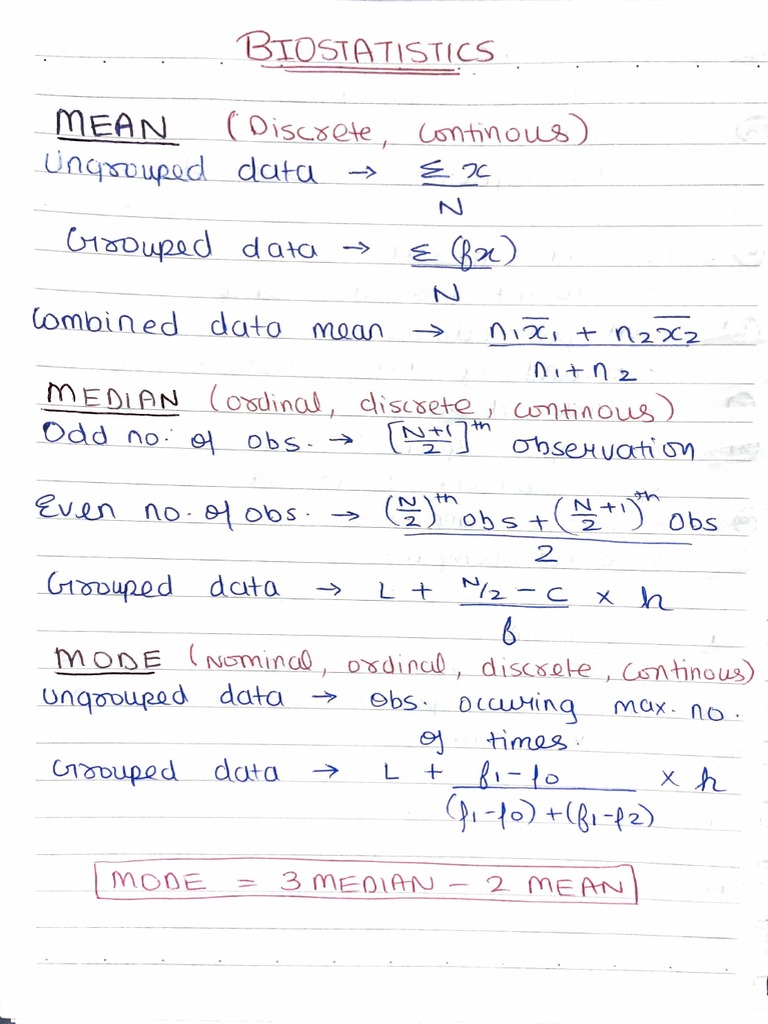 BIOSTATISTICS
MEAN (Discrete, continous)
Ungrouped data → Σx / N
Grouped data → Σ(fx) / N
Combined data mean → n₁x̄₁ + n₂x̄₂ / n₁+n₂
MEDIAN (ordinal, discrete, continous)
Odd no. of obs. → [N+1 / 2]ᵗʰ observation
Even no. of obs. → (N/2)ᵗʰ obs + (N/2 +1)ᵗʰ obs / 2
Grouped data → L + N/2 - C / f × h
MODE (Nominal, ordinal, discrete, continous)
Ungrouped data → obs. occuring max. no.
of times.
Grouped data → L + f₁-f₀ / (f₁-f₀)+(f₁-f₂) × h
MODE = 3 MEDIAN - 2 MEAN